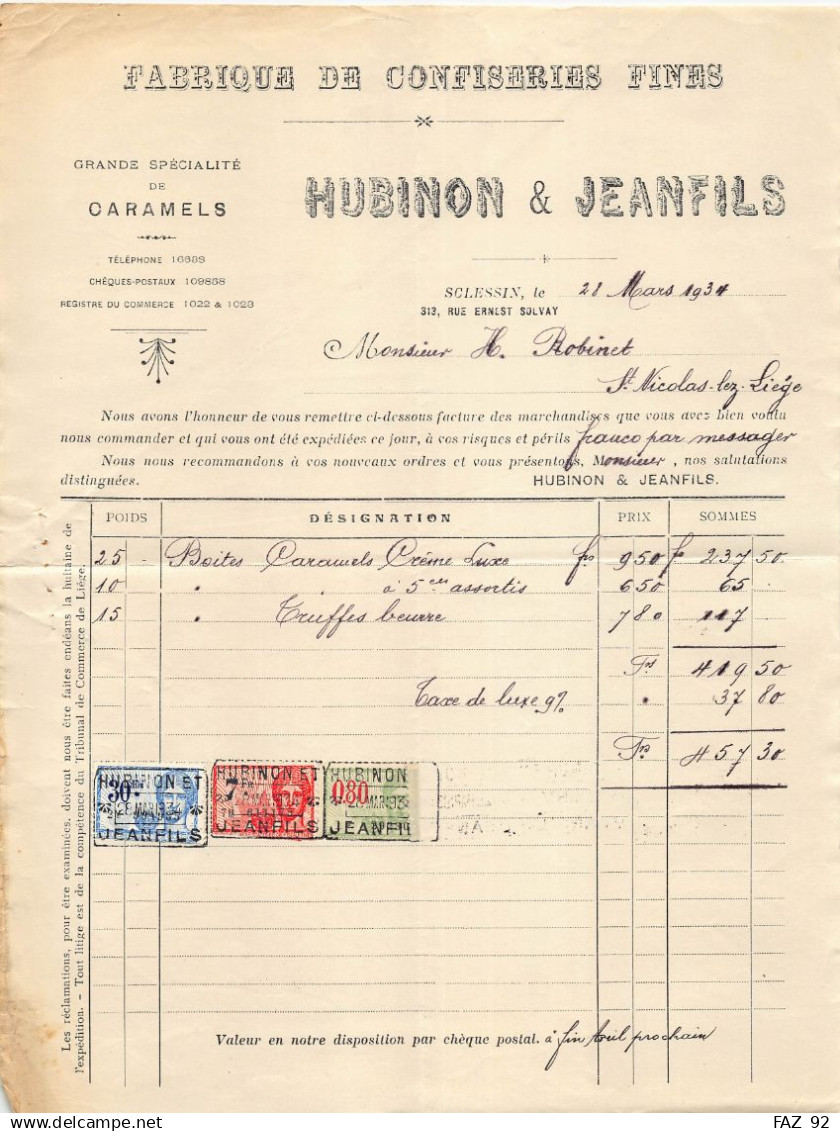 FABRIQUE DE CONFISERIES FINES
GRANDE SPÉCIALITÉ
DE
CARAMELS
TÉLÉPHONE 16883
CHÈQUES-POSTAUX 109858
REGISTRE DU COMMERCE 1022 & 1023
HUBINON & JEANFILS
SCLESSIN, le 28 Mars 1934
313, RUE ERNEST SOLVAY
Monsieur H. Robinet
St Nicolas-lez-Liége
Nous avons l'honneur de vous remettre ci-dessous facture des marchandises que vous avez bien voulu
nous commander et qui vous ont été expédiées ce jour, à vos risques et périls franco par messager
Nous nous recommandons à vos nouveaux ordres et vous présentons, Monsieur, nos salutations
distinguées. HUBINON & JEANFILS.
POIDS DÉSIGNATION PRIX SOMMES
25 - Boites Caramels Crème Luxe frs 9 50 fr 237 50
10 " " à 5 ces assortis 6 50 65 .
15 " Truffes beurre 7 80 117
Frs 419 50
Taxe de luxe 9% " 37 80
Frs 457 30
HUBINON ET
30
28 MAR 1934
JEANFILS
HUBINON ET
7 FR
28 MAR 1934
JEANFILS
HUBINON
0.80
28 MAR 193
JEANFIL
Les réclamations, pour être examinées, doivent nous être faites endéans la huitaine de
l'expédition. - Tout litige est de la compétence du Tribunal de Commerce de Liége.
Valeur en notre disposition par chèque postal. à fin Avril prochain
FAZ 92